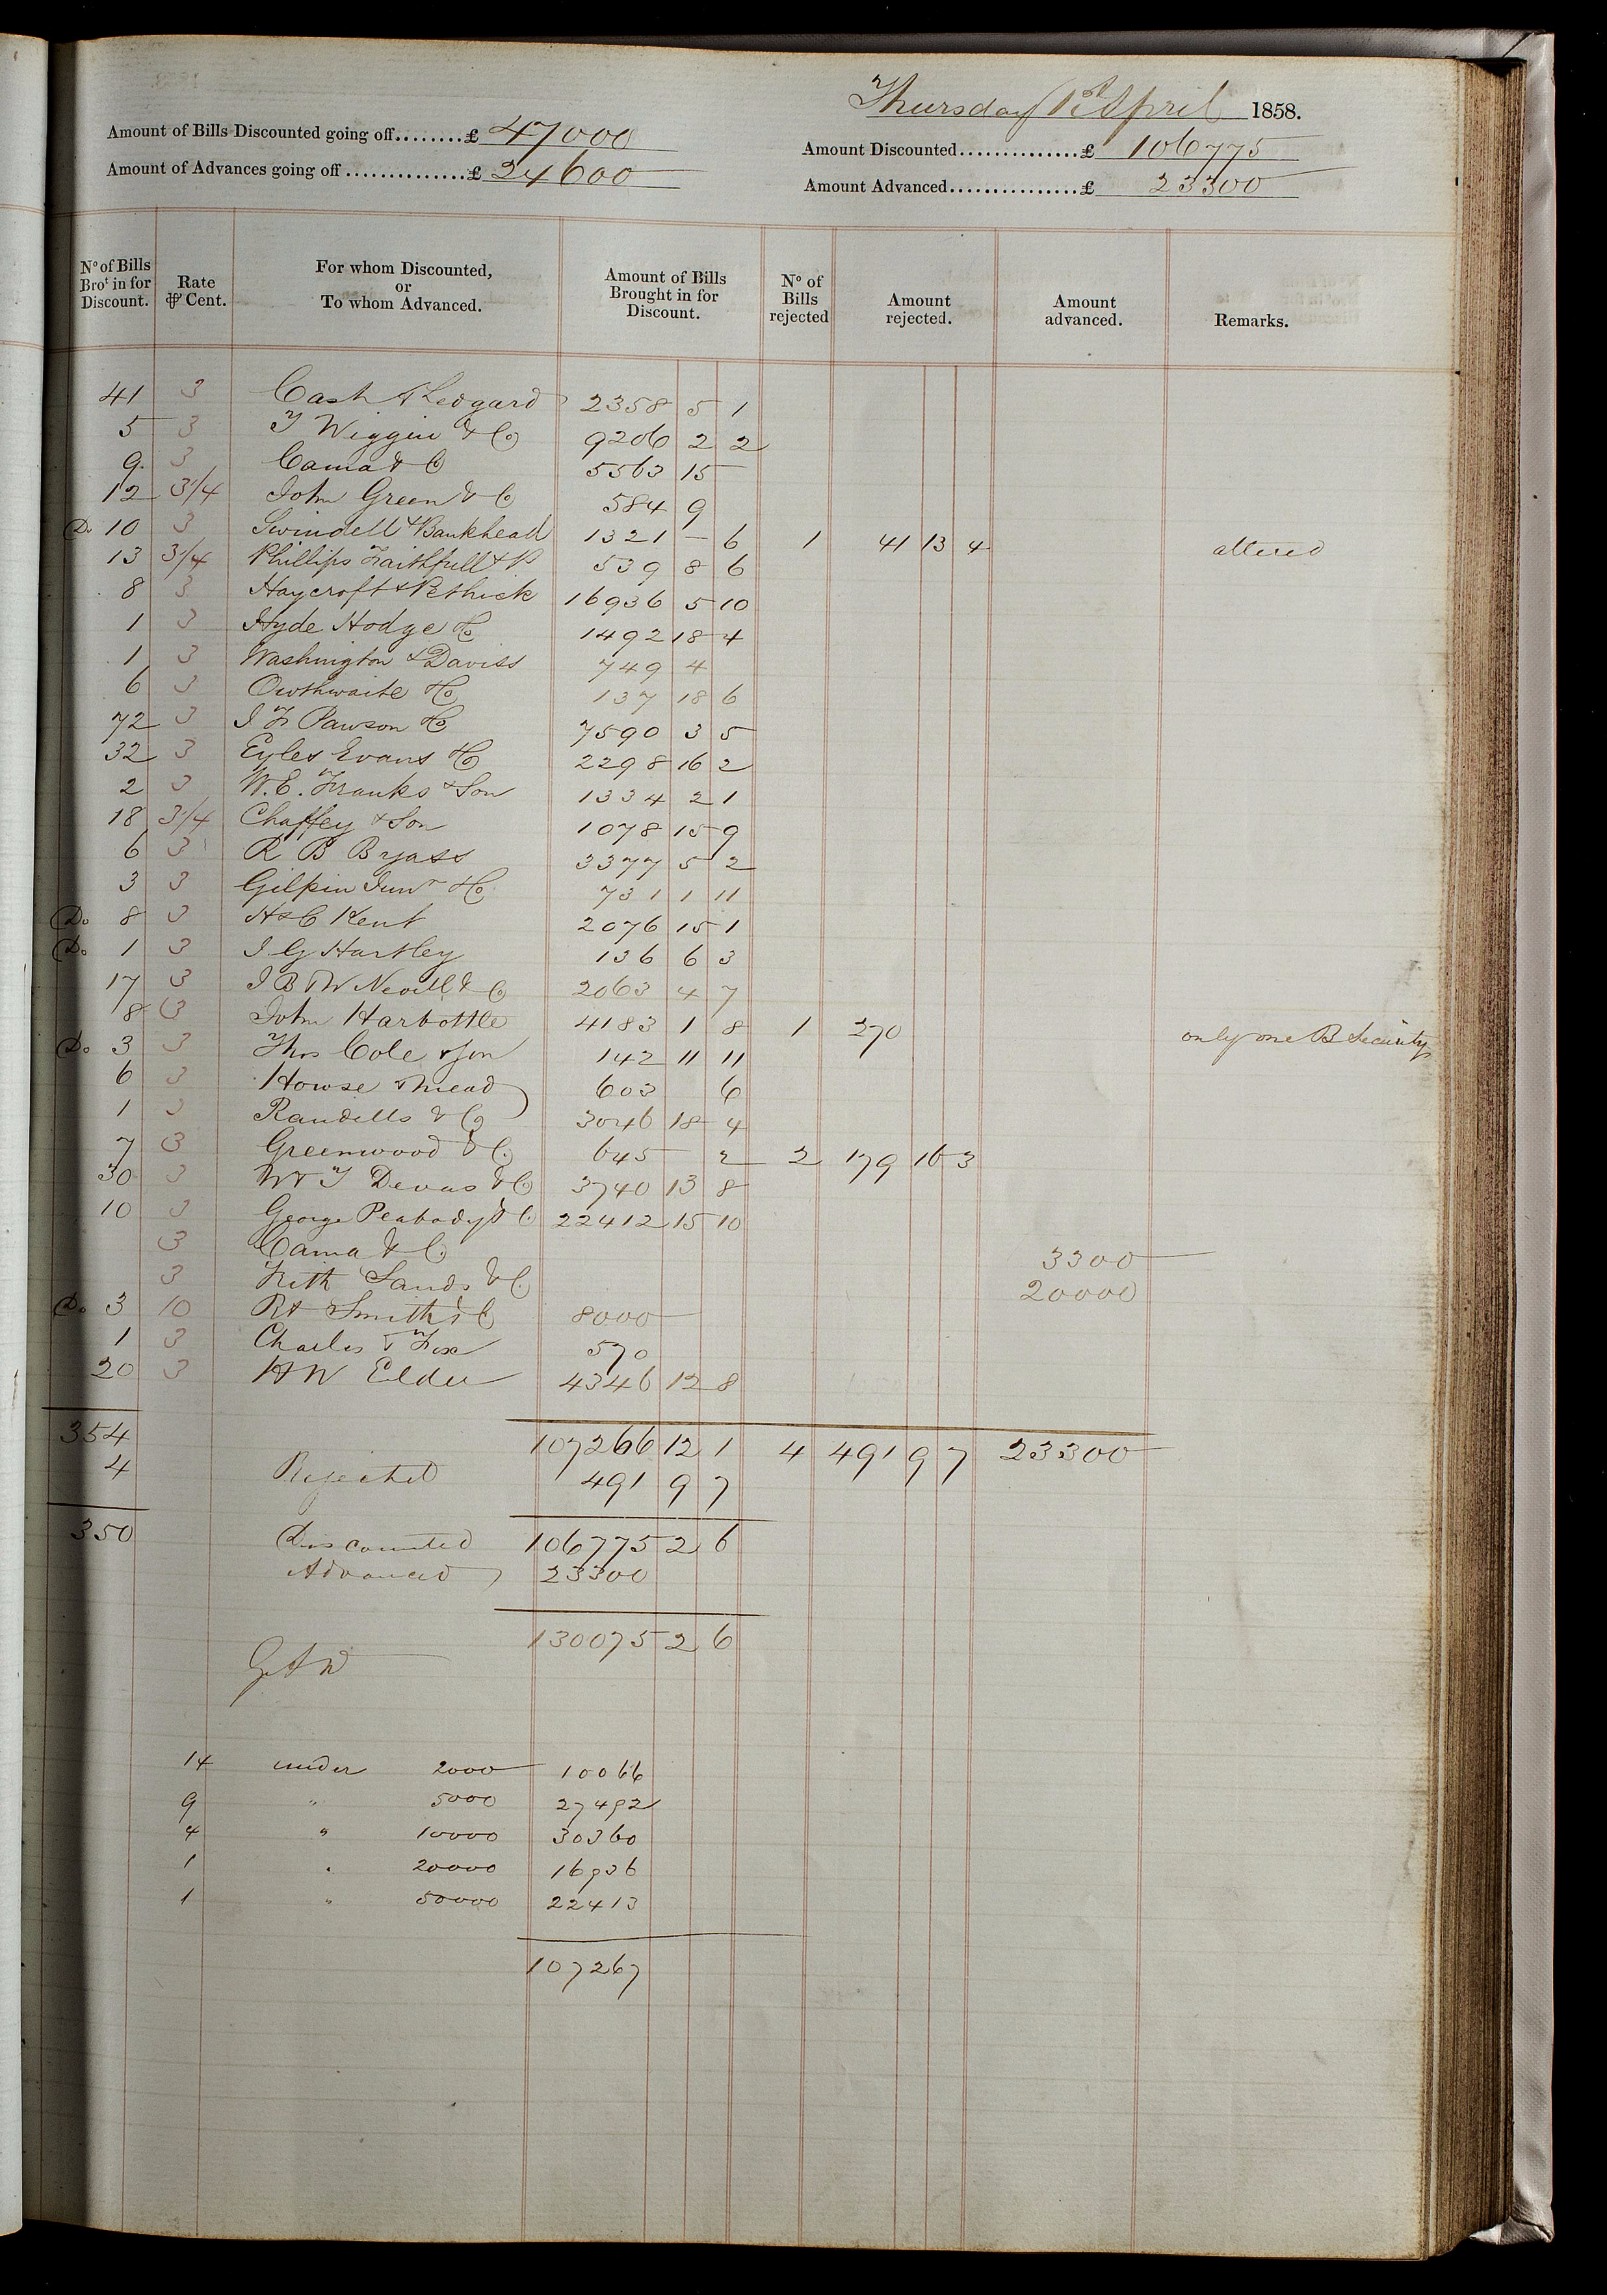 Thursday 1st April 1858.
Amount of Bills Discounted going off........£ 47000
Amount Discounted..............£ 106775
Amount of Advances going off ..............£ 24600
Amount Advanced................£ 23300
No of Bills Brot in for Discount. Rate ⅌ Cent. For whom Discounted, or To whom Advanced. Amount of Bills Brought in for Discount. No of Bills rejected Amount rejected. Amount advanced. Remarks.
41 3 Cash & Ledgard 2358 5 1
5 3 T Wiggin & Co 9206 2 2
9 3 Cama & Co 5563 15
12 3 1/4 John Green & Co 584 9
Do 10 3 Swindell & Bankhead 1321 – 6 1 41 13 4 altered
13 3 1/4 Phillips Faithfull & P 539 8 6
8 3 Haycroft & Pethick 16936 5 10
1 3 Hyde Hodge & Co 1492 18 4
1 3 Washington & Daviss 749 4
6 3 Owthwaite & Co 137 18 6
72 3 J F Pawson & Co 7590 3 5
32 3 Eyles Evans & Co 2298 16 2
2 3 W. E. Franks & Son 1334 2 1
18 3 1/4 Chaffey & Son 1078 15 9
6 3 R B Byass 3377 5 2
3 3 Gilpin Junr & Co 731 1 11
Do 8 3 H & C Kent 2076 15 1
Do 1 3 J G Hartley 136 6 3
17 3 J B & W Nevill & Co 2063 4 7
8 3 John Harbottle 4183 1 8 1 270 only one B Security
Do 3 3 Thos Cole & Son 142 11 11
6 3 Howse & Mead 603 6
1 3 Randells & Co 3046 18 4
7 3 Greenwood & Co 645 2 2 179 16 3
30 3 W & T Devas & Co 3740 13 8
10 3 George Peabody & Co 22412 15 10
3 Cama & Co 3300
3 Frith Sands & Co 20000
Do 3 10 Rt Smith & Co 8000
1 3 Charles & Fox 570
20 3 H W Elder 4346 12 8
354 107266 12 1 4 491 9 7 23300
4 Rejected 491 9 7
350 Discounted 106775 2 6
Advanced 23300
130075 2 6
14 under 2000 10066
9 " 5000 27492
4 " 10000 30360
1 " 20000 16936
1 " 50000 22413
107267